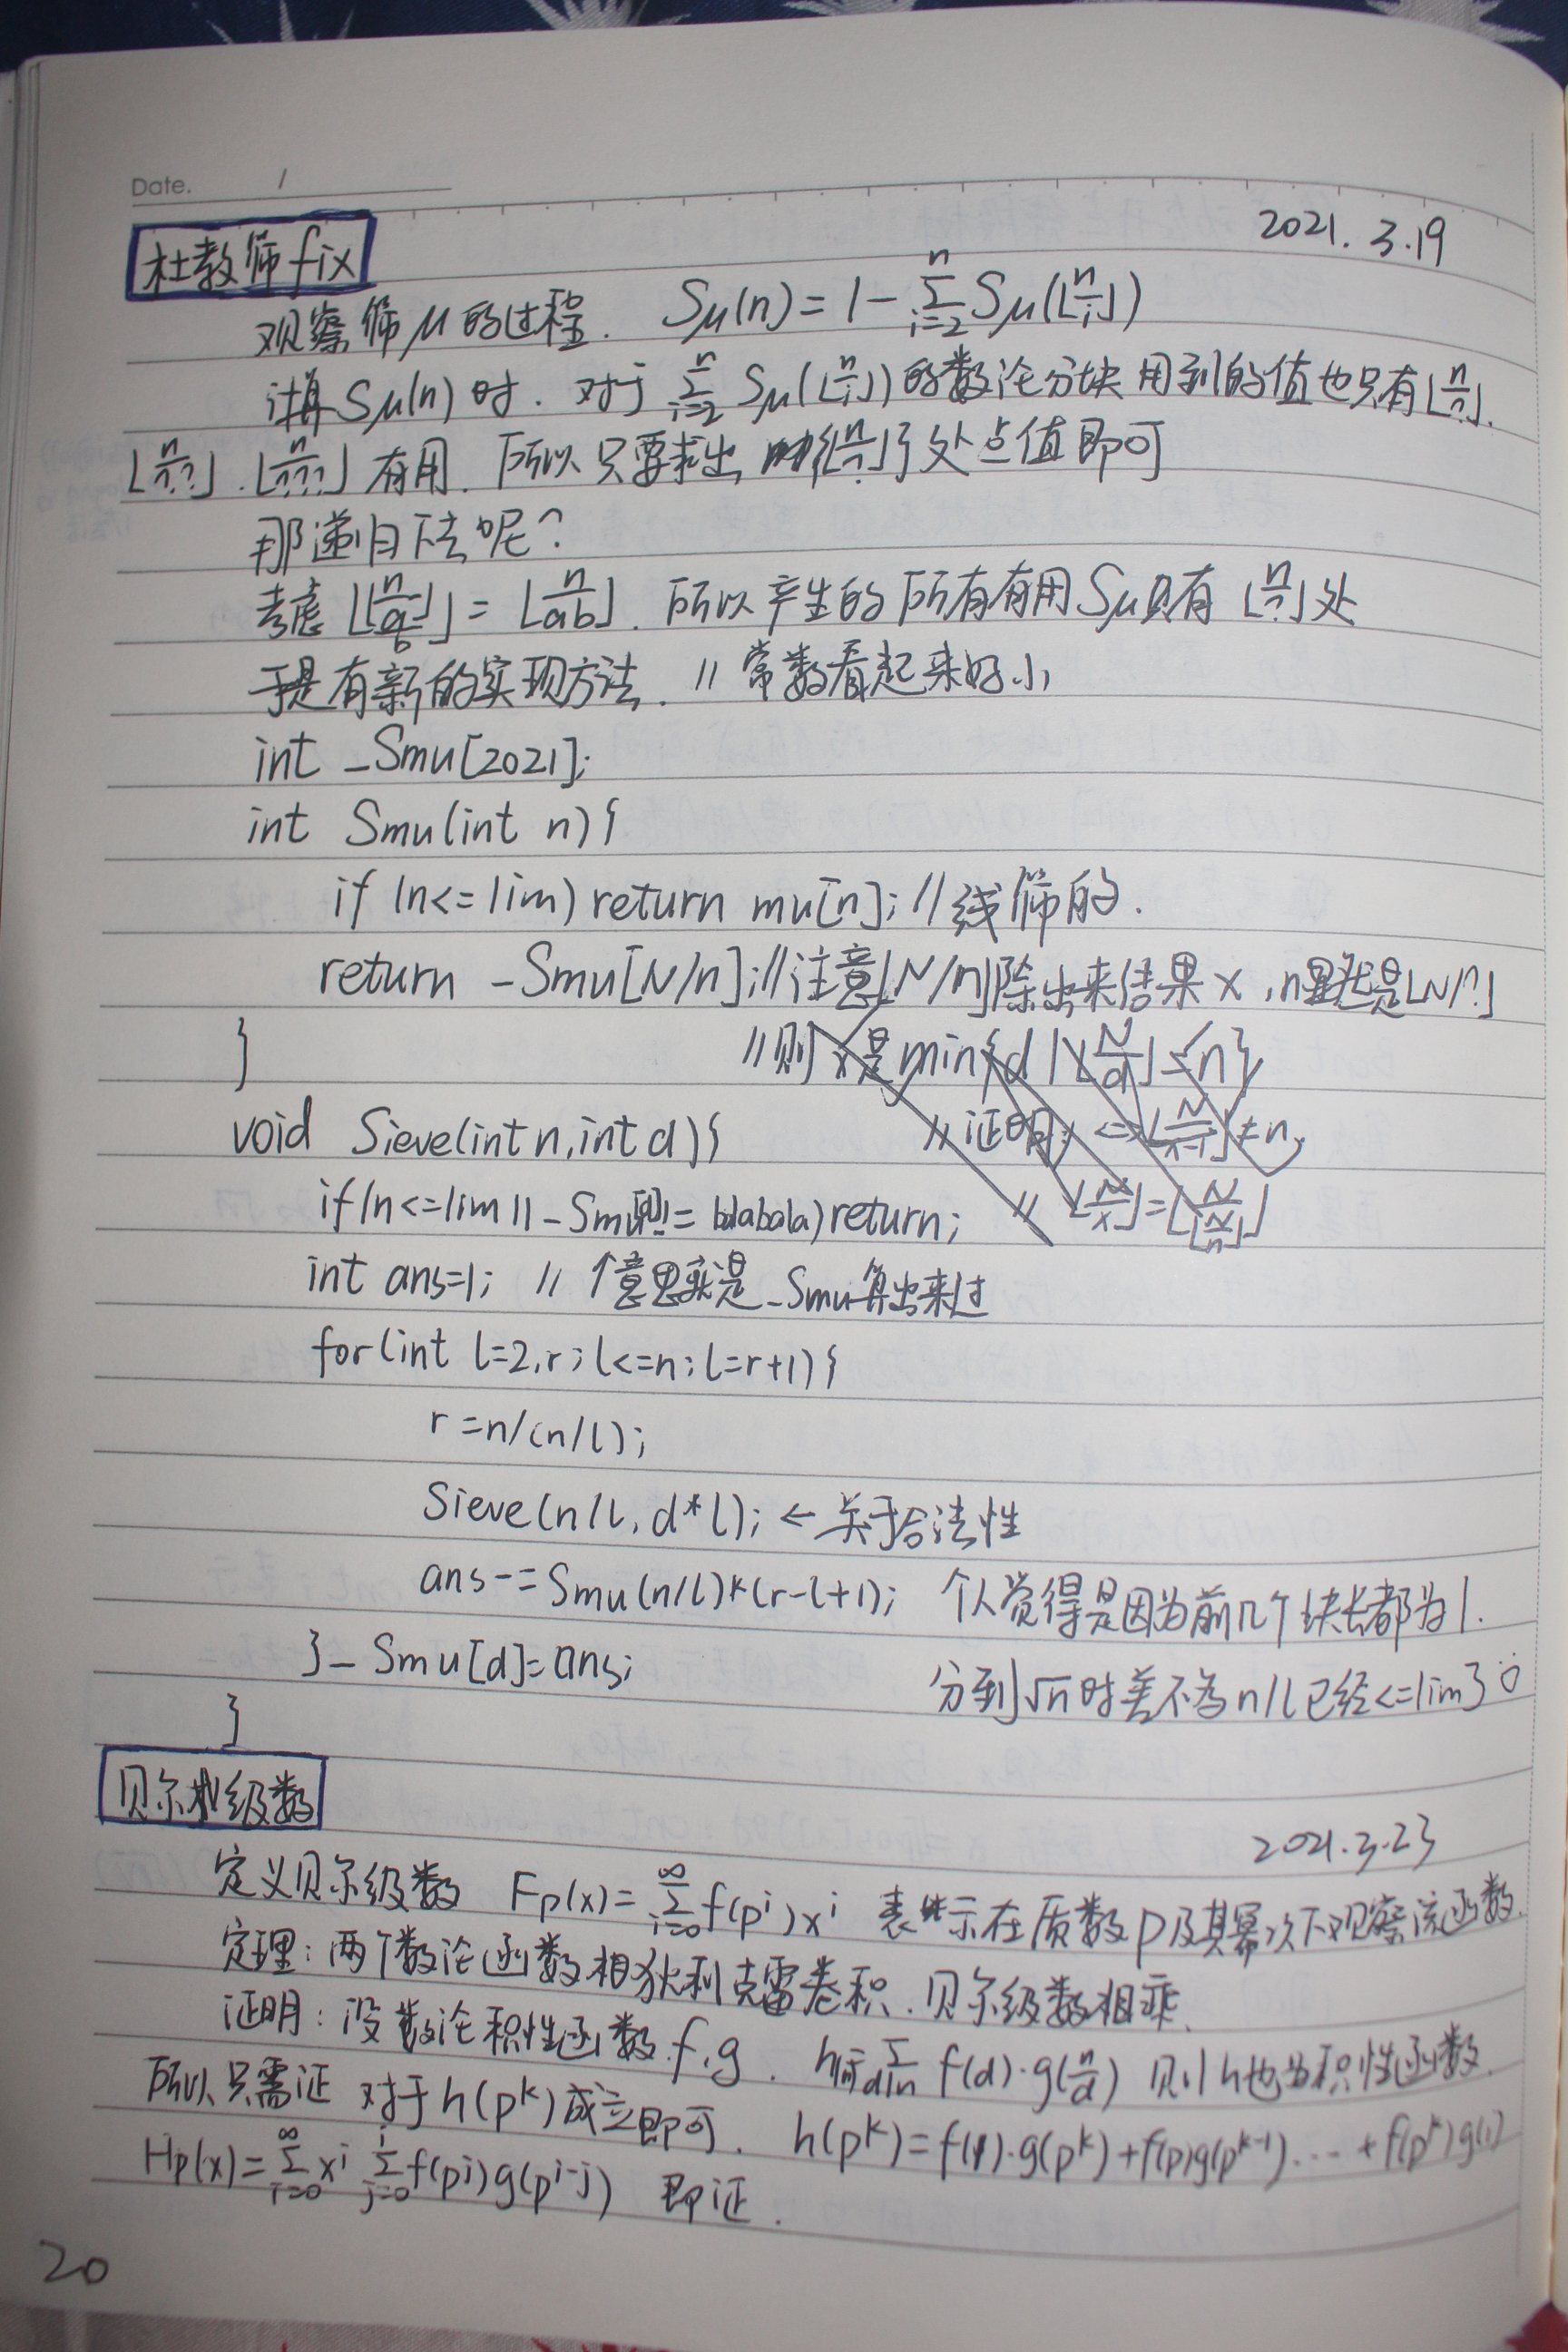 Date. /
2021.3.19
杜教筛 fix
观察筛 μ 的过程. Sμ(n)=1-∑_{i=2}^{n} Sμ(⌊n/i⌋)
计算 Sμ(n) 时. 对于 ∑_{i=2}^{n} Sμ(⌊n/i⌋) 的数论分块 用到的值也只有⌊n/?⌋.
⌊n/??⌋.⌊n/???⌋ 有用. 所以只要求出 {⌊n/?⌋} 处点值即可
那递归下去呢?
考虑 ⌊⌊n/a⌋/b⌋ = ⌊n/ab⌋. 所以产生的所有有用 Sμ 只有 ⌊n/?⌋处
于是有新的实现方法. // 常数看起来好小
int _Smu[2021];
int Smu(int n){
if(n<=lim) return mu[n]; //线筛的.
return _Smu[N/n]; //注意⌊N/n⌋除出来结果x,n显然是⌊N/?⌋
} //则x是min{d|⌊N/d⌋=n}
void Sieve(int n,int d){ //证明: <=>⌊N/(x-1)⌋≠n,
if(n<=lim||_Smu[d]!=blabala)return; // ⌊N/x⌋=⌊N/⌊N/n⌋⌋
int ans=1; // ↑意思就是_Smu算出来过
for(int l=2,r;l<=n;l=r+1){
r=n/(n/l);
Sieve(n/l,d*l); ← 关于合法性
ans-=Smu(n/l)*(r-l+1); 个人觉得是因为前几个块长都为1.
}_Smu[d]=ans; 分到√n时差不多n/l已经<=lim了
}
贝尔级数
2021.3.23
定义贝尔级数 Fp(x)=∑_{i=0}^{∞} f(p^i)x^i 表示在质数p及其幂次下观察该函数.
定理:两个数论函数相狄利克雷卷积.贝尔级数相乘.
证明:设数论积性函数f,g. h(n)=∑_{d|n} f(d)·g(n/d) 则h也为积性函数.
所以只需证 对于h(p^k)成立即可. h(p^k)=f(1)·g(p^k)+f(p)g(p^{k-1})...+f(p^k)g(1)
Hp(x)=∑_{i=0}^{∞} x^i ∑_{j=0}^{i} f(p^j)g(p^{i-j}) 即证.
20